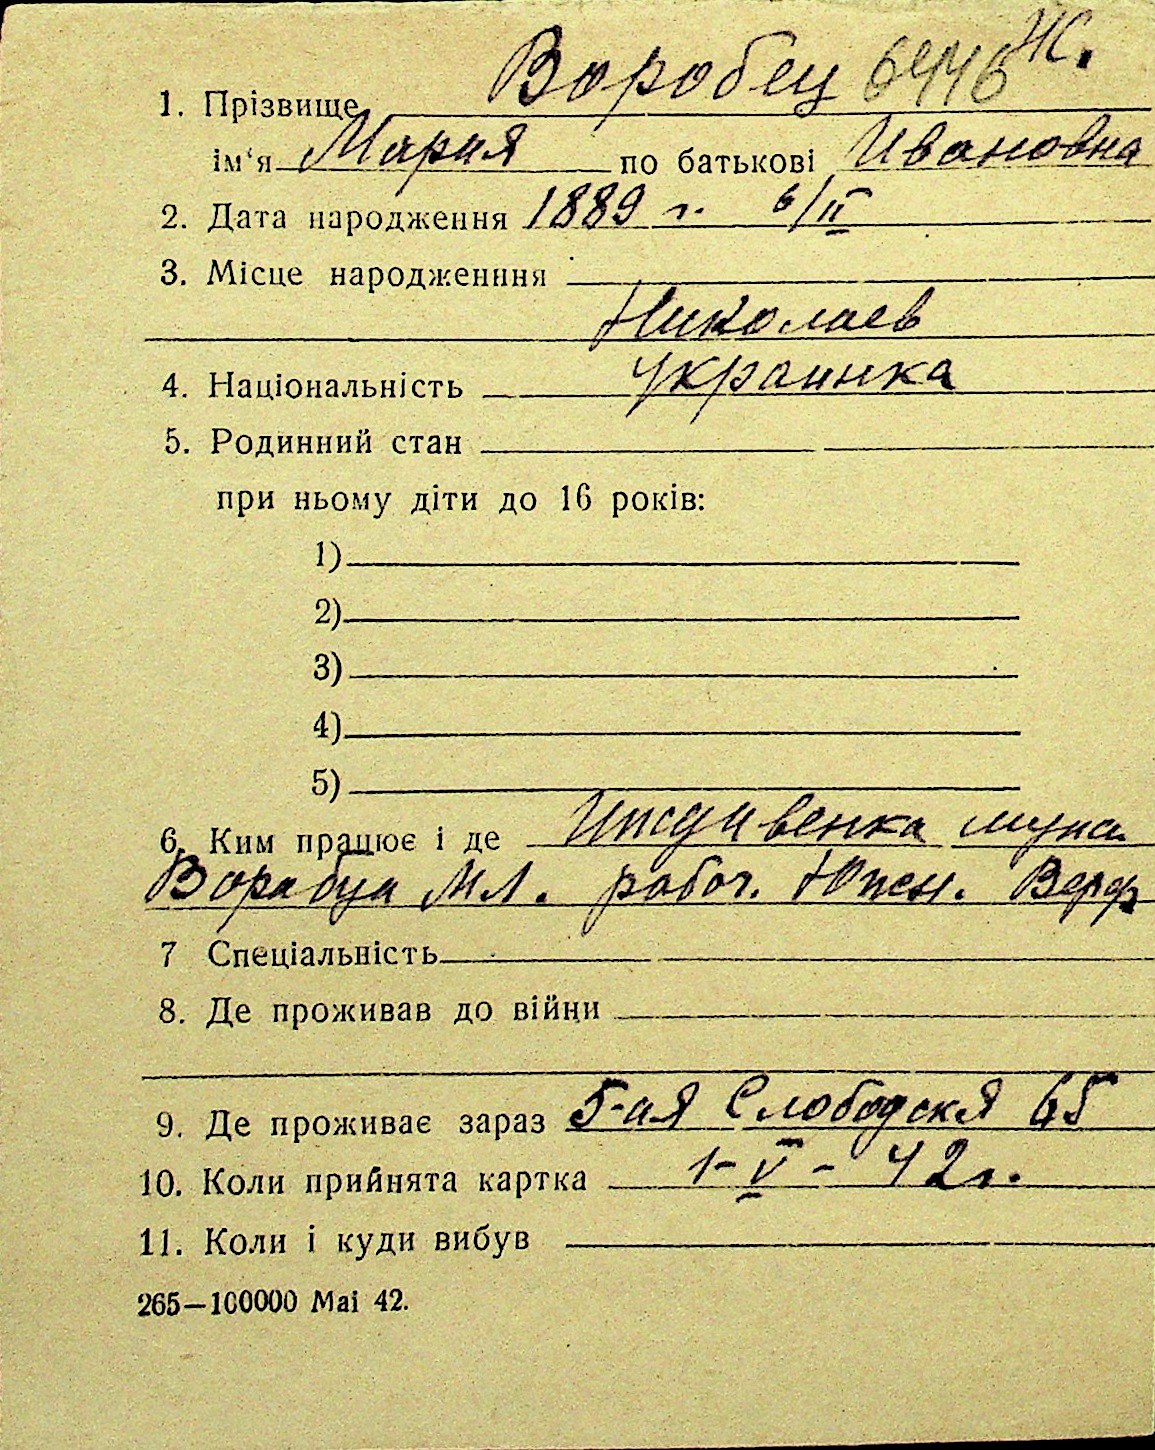 1. Прізвище Воробец 6446 Ж.
ім'я Мария по батькові Ивановна
2. Дата народження 1889 г. 6/II
3. Місце народженння
Николаев
4. Національність украинка
5. Родинний стан
при ньому діти до 16 років:
1)
2)
3)
4)
5)
6. Ким працює і де Иждивенка мужа
Воробца М.Л. рабоч. Южн. Верф
7 Спеціальність
8. Де проживав до війни
9. Де проживає зараз 5-ая Слободская 65
10. Коли прийнята картка 1-V-42г.
11. Коли і куди вибув
265—100000 Mai 42.